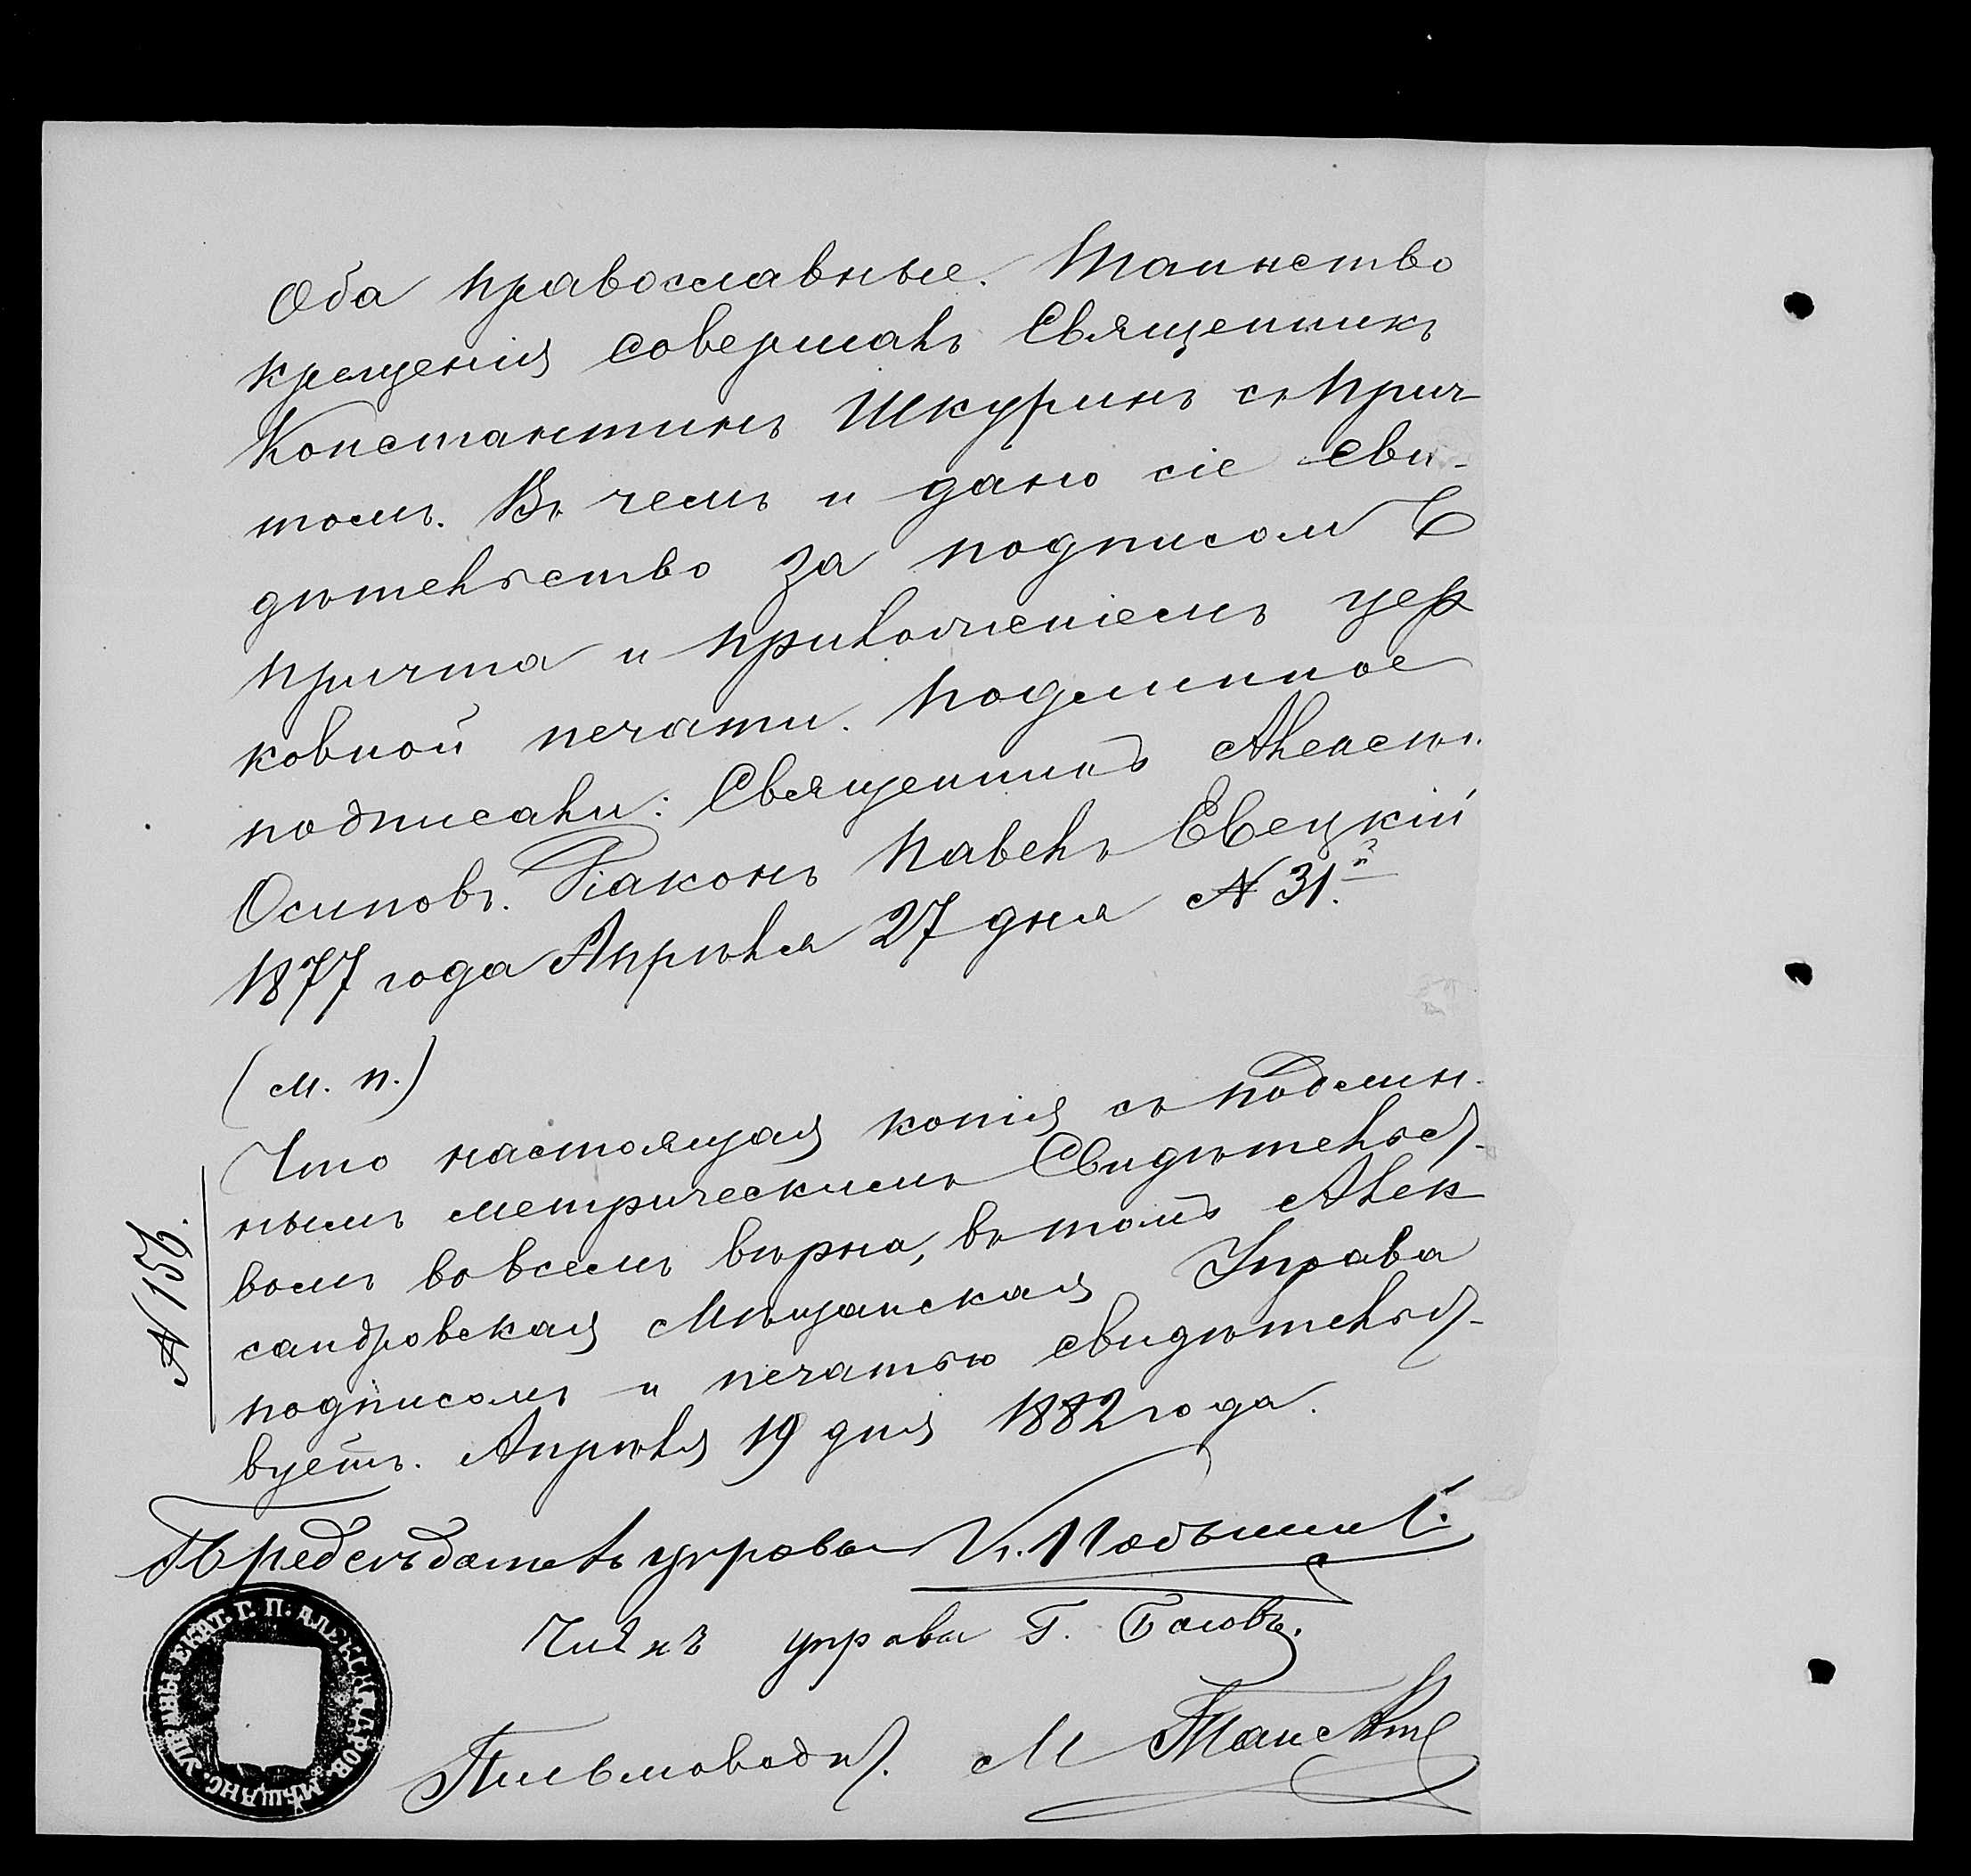 Оба православные. Таинство
крещенія совершалъ Священникъ
Константинъ Шкуринъ съ прич-
томъ. Въ чемъ и дано сіе сви-
дѣтельство за подписом
причта и приложеніемъ цер
ковной печати. Подлинное
подписали: Священникъ Алексѣй
Осиповъ. Діаконъ Павелъ Евецкій
1877 года Апрѣля 27 дня № 31.
(М. п.)
Что настоящая копія съ подлин-
нымъ метрическимъ Свидѣтельст-
вомъ во всемъ вѣрна, въ томъ Алек
сандровская Мѣщанская Управа
подписомъ и печатью свидѣтельст-
вуетъ. Апрѣля 19 дня 1882 года.
№ 156.
Предсѣдатель управы
Членъ управы Г.
Письмовод. М
МѢЩАНС. УПРАВЫ ЕКАТ. Г. П. АЛЕКСАНДРОВ.